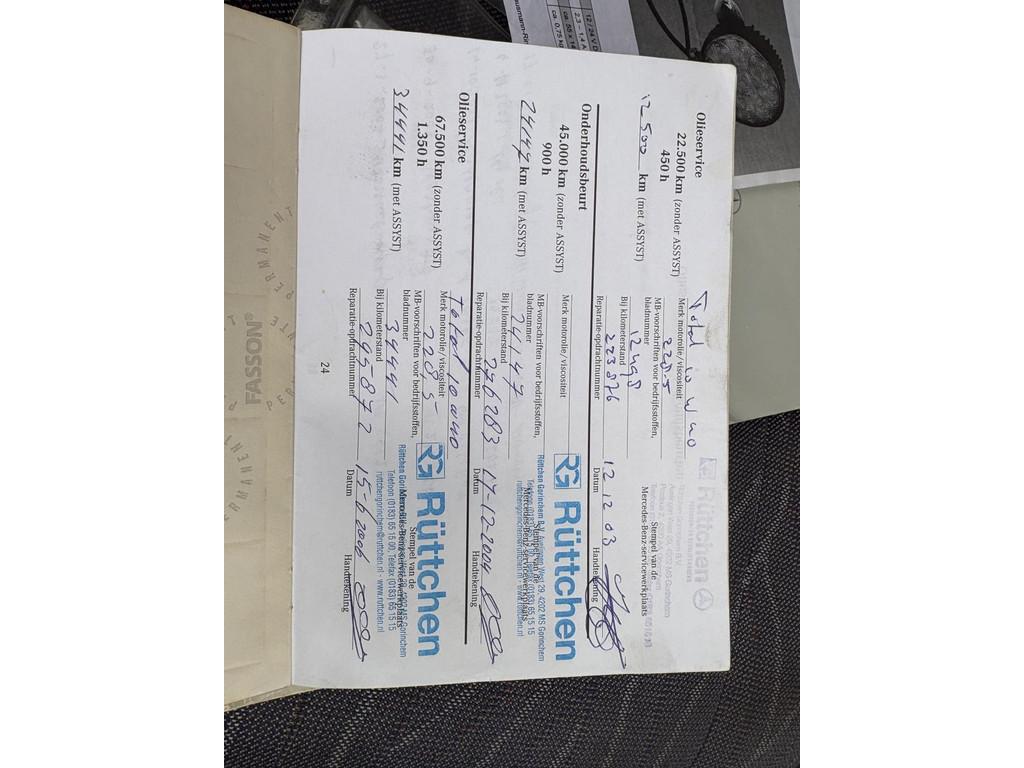 Olieservice
22.500 km (zonder ASSYST)
450 h
12500 km (met ASSYST)
Total 10 W40
Merk motorolie/viscositeit
228-5
MB-voorschriften voor bedrijfsstoffen,
bladnummer
12498
Bij kilometerstand
223876
Reparatie-opdrachtnummer
Rüttchen
Stempel van de
Mercedes-Benz-servicewerkplaats
12 12 03
Datum
Handtekening
Onderhoudsbeurt
45.000 km (zonder ASSYST)
900 h
24147 km (met ASSYST)
Merk motorolie/viscositeit
MB-voorschriften voor bedrijfsstoffen,
bladnummer
24147
Bij kilometerstand
246283
Reparatie-opdrachtnummer
RG Rüttchen
Rüttchen Gorinchem B.V. Avelingen West 29, 4202 MS Gorinchem
Stempel van de
Mercedes-Benz-servicewerkplaats
rüttchengorinchem@ruttchen.nl - www.ruttchen.nl
17-12-2004
Datum
Handtekening
Olieservice
67.500 km (zonder ASSYST)
1.350 h
34441 km (met ASSYST)
Total 10 W40
Merk motorolie/viscositeit
228-5
MB-voorschriften voor bedrijfsstoffen,
bladnummer
34441
Bij kilometerstand
295872
Reparatie-opdrachtnummer
RG Rüttchen
Stempel van de
Mercedes-Benz-servicewerkplaats
Telefoon (0183) 65 15 00, Telefax (0183) 65 15 15
rüttchengorinchem@ruttchen.nl - www.ruttchen.nl
15-6-2006
Datum
Handtekening
24
FASSON®
PERMANENT